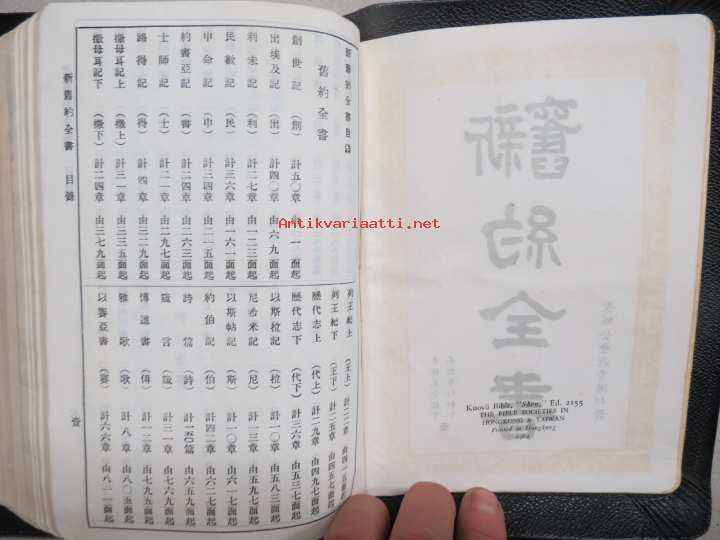 新舊約全書目錄
舊約全書
創世記 (創) 計五〇章 由一面起
出埃及記 (出) 計四〇章 由六九面起
利未記 (利) 計二七章 由一二三面起
民數記 (民) 計三六章 由一六一面起
申命記 (申) 計三四章 由二一五面起
約書亞記 (書) 計二四章 由二六三面起
士師記 (士) 計二一章 由二九七面起
路得記 (得) 計四章 由三二九面起
撒母耳記上 (撒上) 計三一章 由三三五面起
撒母耳記下 (撒下) 計二四章 由三七九面起
列王紀上 (王上) 計二二章 由四一五面起
列王紀下 (王下) 計二五章 由四五七面起
歷代志上 (代上) 計二九章 由四九七面起
歷代志下 (代下) 計三六章 由五三七面起
以斯拉記 (拉) 計一〇章 由五八三面起
尼希米記 (尼) 計一三章 由五九七面起
以斯帖記 (斯) 計一〇章 由六一七面起
約伯記 (伯) 計四二章 由六二七面起
詩篇 (詩) 計一五〇篇 由六五九面起
箴言 (箴) 計三一章 由七六九面起
傳道書 (傳) 計一二章 由七九五面起
雅歌 (歌) 計八章 由八〇五面起
以賽亞書 (賽) 計六六章 由八一一面起
新舊約全書 目錄 壹
Antikvariaatti.net
新舊約全書
Kuoyü Bible, "Shen," Ed. 2155
THE BIBLE SOCIETIES IN
HONGKONG & TAIWAN
Printed in Hongkong